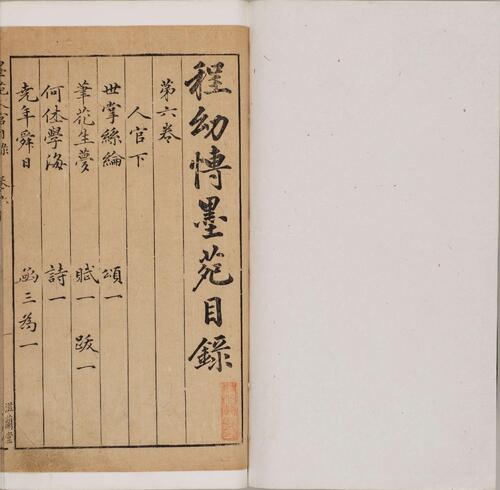 程幼博墨苑目錄
第六卷
人官下
世掌絲綸 頌一
筆花生夢 賦一 跋一
何休學海 詩一
堯年舜日 函三為一
滋蘭堂